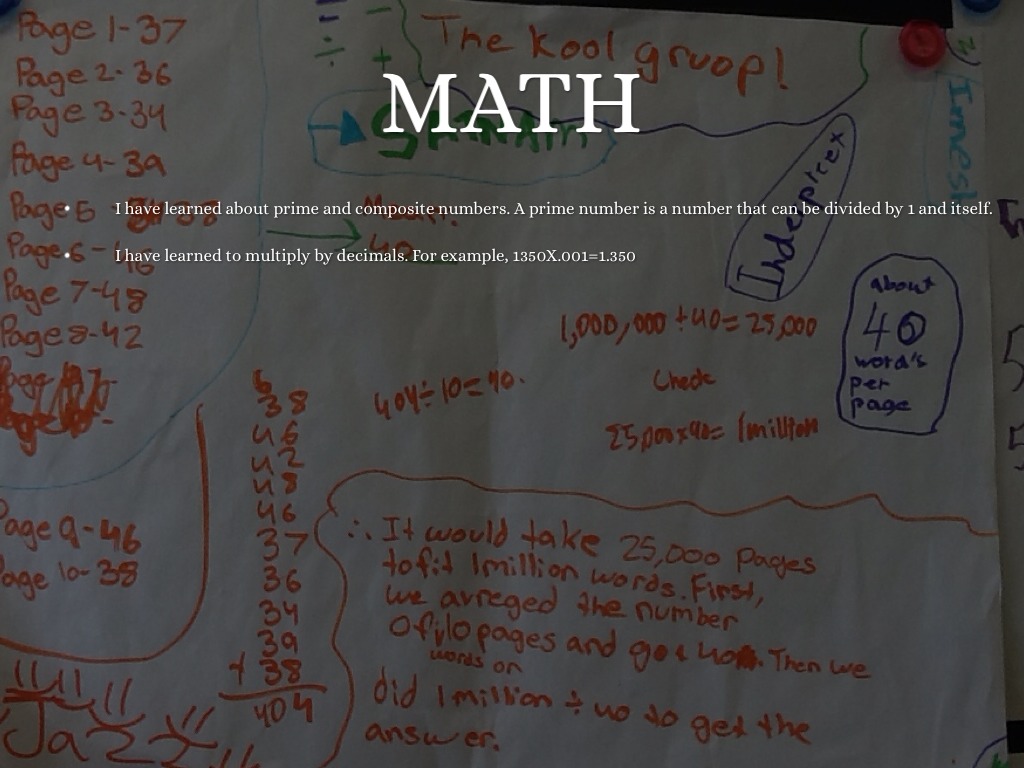 MATH
I have learned about prime and composite numbers. A prime number is a number that can be divided by 1 and itself.
I have learned to multiply by decimals. For example, 1350X.001=1.350
The Kool gruop!
Page 1-37
Page 2-36
Page 3-34
Page 4-39
Page 5
Page 6-46
Page 7-48
Page 8-42
Page 9-46
Page 10-38
6
38
46
42
48
46
37
36
34
39
+ 38
404
404÷10=40.
1,000,000÷40=25,000
Check
25,000x40= 1million
about
40
word's
per
page
∴ It would take 25,000 pages
to fit 1million words. First,
we avreged the number
Of 10 pages and got 40. Then we
words on
did 1million ÷ 40 to get the
answer.
Jazzy